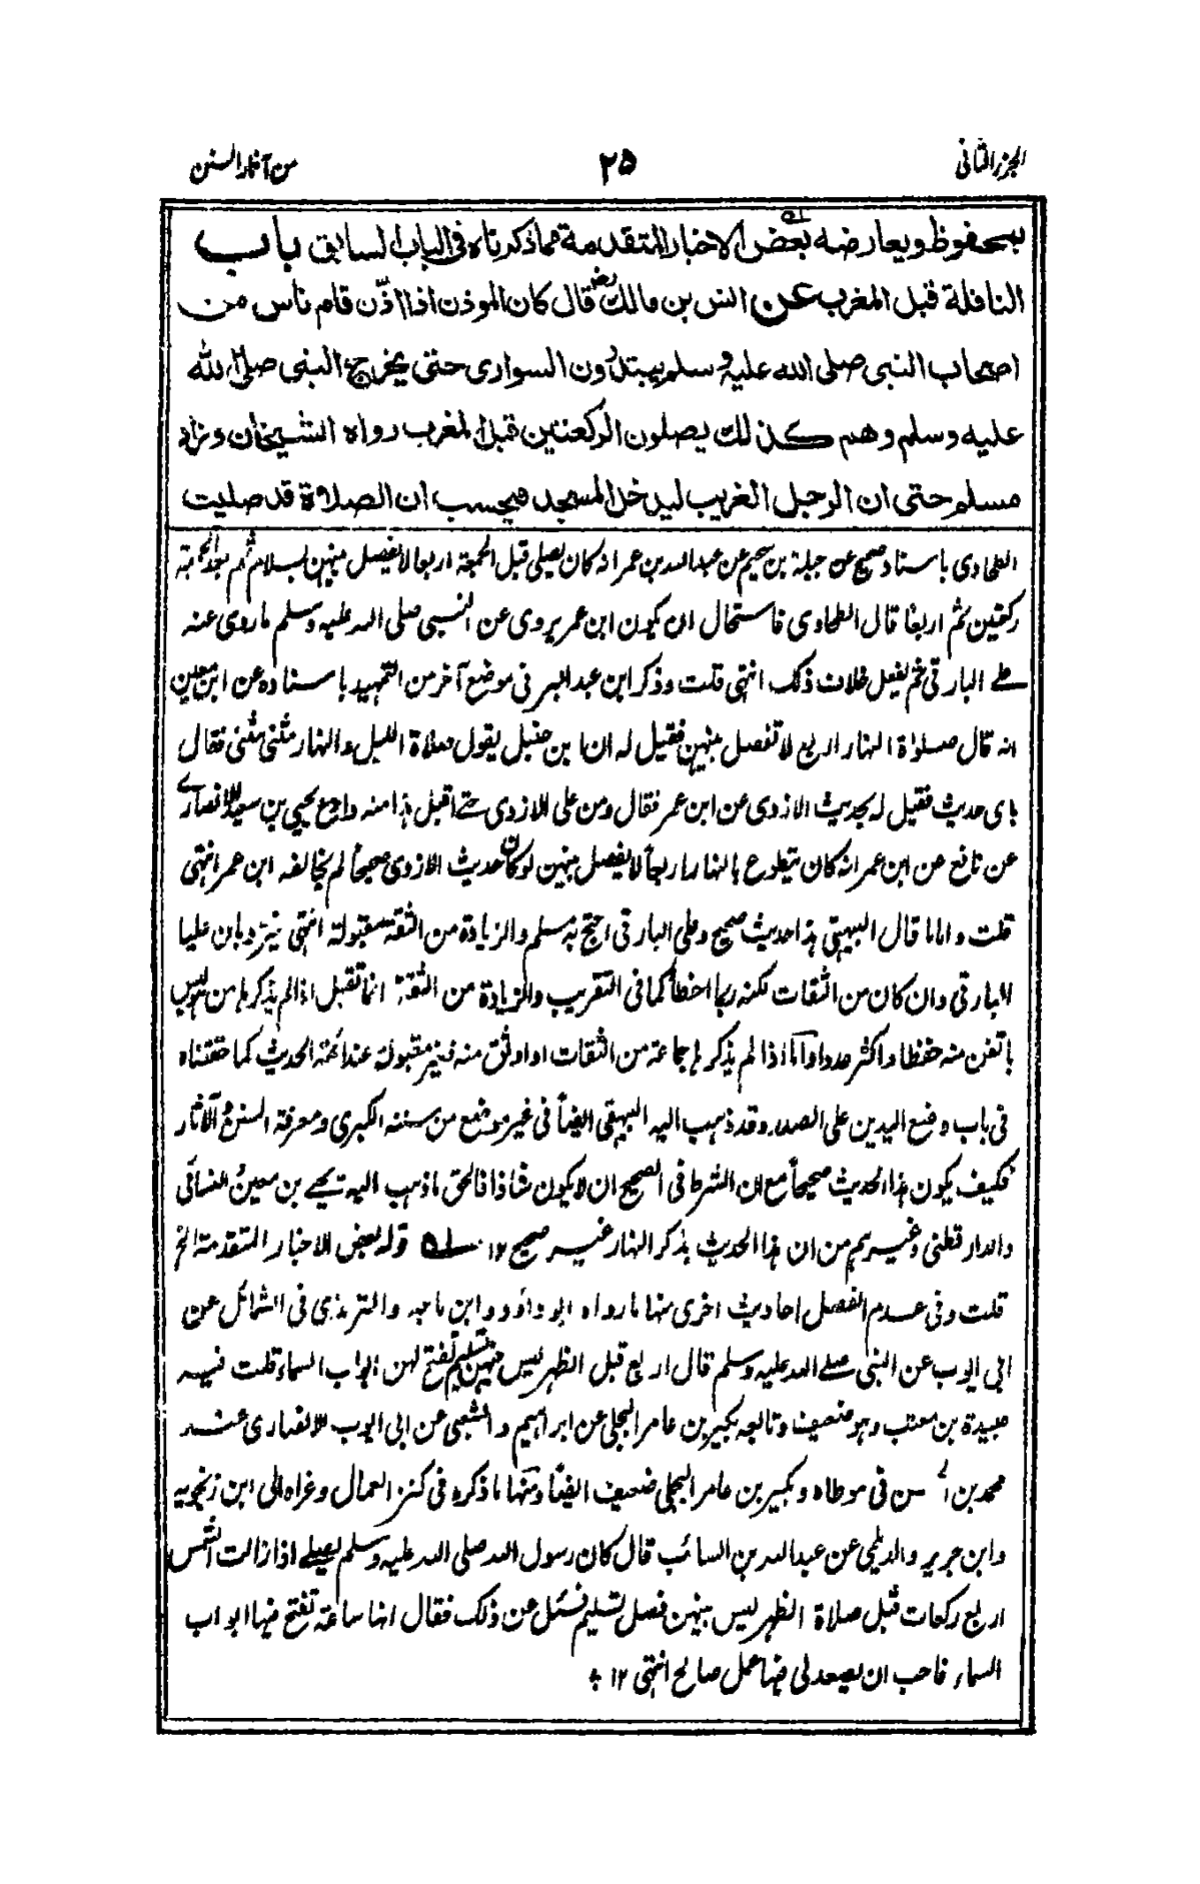 الجزء الثانى
٢٥
من آثار السنن
بمحفوظ ويعارضه بعض الاخبار المتقدمة مما ذكرناه فى الباب السابق باب
النافلة قبل المغرب عن انس بن مالك رض قال كان الموذن اذا اذّن قام ناس من
اصحاب النبى صلى الله عليه وسلم يبتدرون السوارى حتى يخرج النبى صلى الله
عليه وسلم وهم كذلك يصلون الركعتين قبل المغرب رواه الشيخان وزاد
مسلم حتى ان الرجل الغريب ليدخل المسجد فيحسب ان الصلاة قد صليت
الطحاوى باسناد صحيح عن جبلة بن سحيم عن عبد الله بن عمر انه كان يصلى قبل الجمعة اربعا لا يفصل بينهن بسلام ثم بعد الجمعة
ركعتين ثم اربعا قال الطحاوى فاستحال ان يكون ابن عمر يروى عن النبى صلى الله عليه وسلم ما روى عنه
على البارقى ثم يفعل خلاف ذلك انتهى قلت وذكر ابن عبد البر فى موضع آخر من التمهيد باسناده عن ابن معين
انه قال صلوٰة النهار اربع لا تفصل بينهن فقيل له ان ابن حنبل يقول صلاة الليل والنهار مثنى مثنى فقال
باى حديث فقيل له بحديث الازدى عن ابن عمر فقال ومن على الازدى حتى اقبل هذا منه وادع يحيى بن سعيد الانصارى
عن نافع عن ابن عمر انه كان يتطوع بالنهار اربعاً لا يفصل بينهن لو كان حديث الازدى صحيحاً لم يخالفه ابن عمر انتهى
قلت واما ما قال البيهقى هذا حديث صحيح وعلى البارقى احتج به مسلم والزيادة من الثقة مقبولة انتهى فيرد بان عليا
البارقى وان كان من الثقات لكنه ربما اخطأ كما فى التقريب والزيادة من الثقة انما تقبل اذا لم يذكرها من ليس
باتقن منه حفظا واكثر عددا واما اذا لم يذكرها جماعة من الثقات او اوثق منه فغير مقبولة عند ائمة الحديث كما حققناه
فى باب وضع اليدين على الصدر وقد ذهب اليه البيهقى ايضاً فى غير موضع من سننه الكبرى ومعرفة السنن والآثار
فكيف يكون هذا الحديث صحيحاً مع ان الشرط فى الصحيح ان لا يكون شاذا فالحق ما ذهب اليه يحيى بن معين والنسائى
والدارقطنى وغيرهم من ان هذا الحديث بذكر النهار غير صحيح ١٢ له قوله بعض الاخبار المتقدمة الخ
قلت وفى عدم الفصل احاديث اخرى منها ما رواه ابو داؤد وابن ماجه والترمذى فى الشمائل عن
ابى ايوب عن النبى صلى الله عليه وسلم قال اربع قبل الظهر ليس فيهن تسليم تفتح لهن ابواب السماء قلت فيه
عبيدة بن معتب وهو ضعيف وتابعه بكير بن عامر البجلى عن ابراهيم والشعبى عن ابى ايوب الانصارى عند
محمد بن الحسن فى موطاه وبكير بن عامر البجلى ضعيف ايضاً ومنها ما ذكره فى كنز العمال وعزاه الى ابن زنجويه
وابن جرير والديلمى عن عبد الله بن السائب قال كان رسول الله صلى الله عليه وسلم يصلى اذا زالت الشمس
اربع ركعات قبل صلاة الظهر ليس بينهن فصل بتسليم فسئل عن ذلك فقال انها ساعة تفتح فيها ابواب
السماء فاحب ان يصعد لى فيها عمل صالح انتهى ١٢